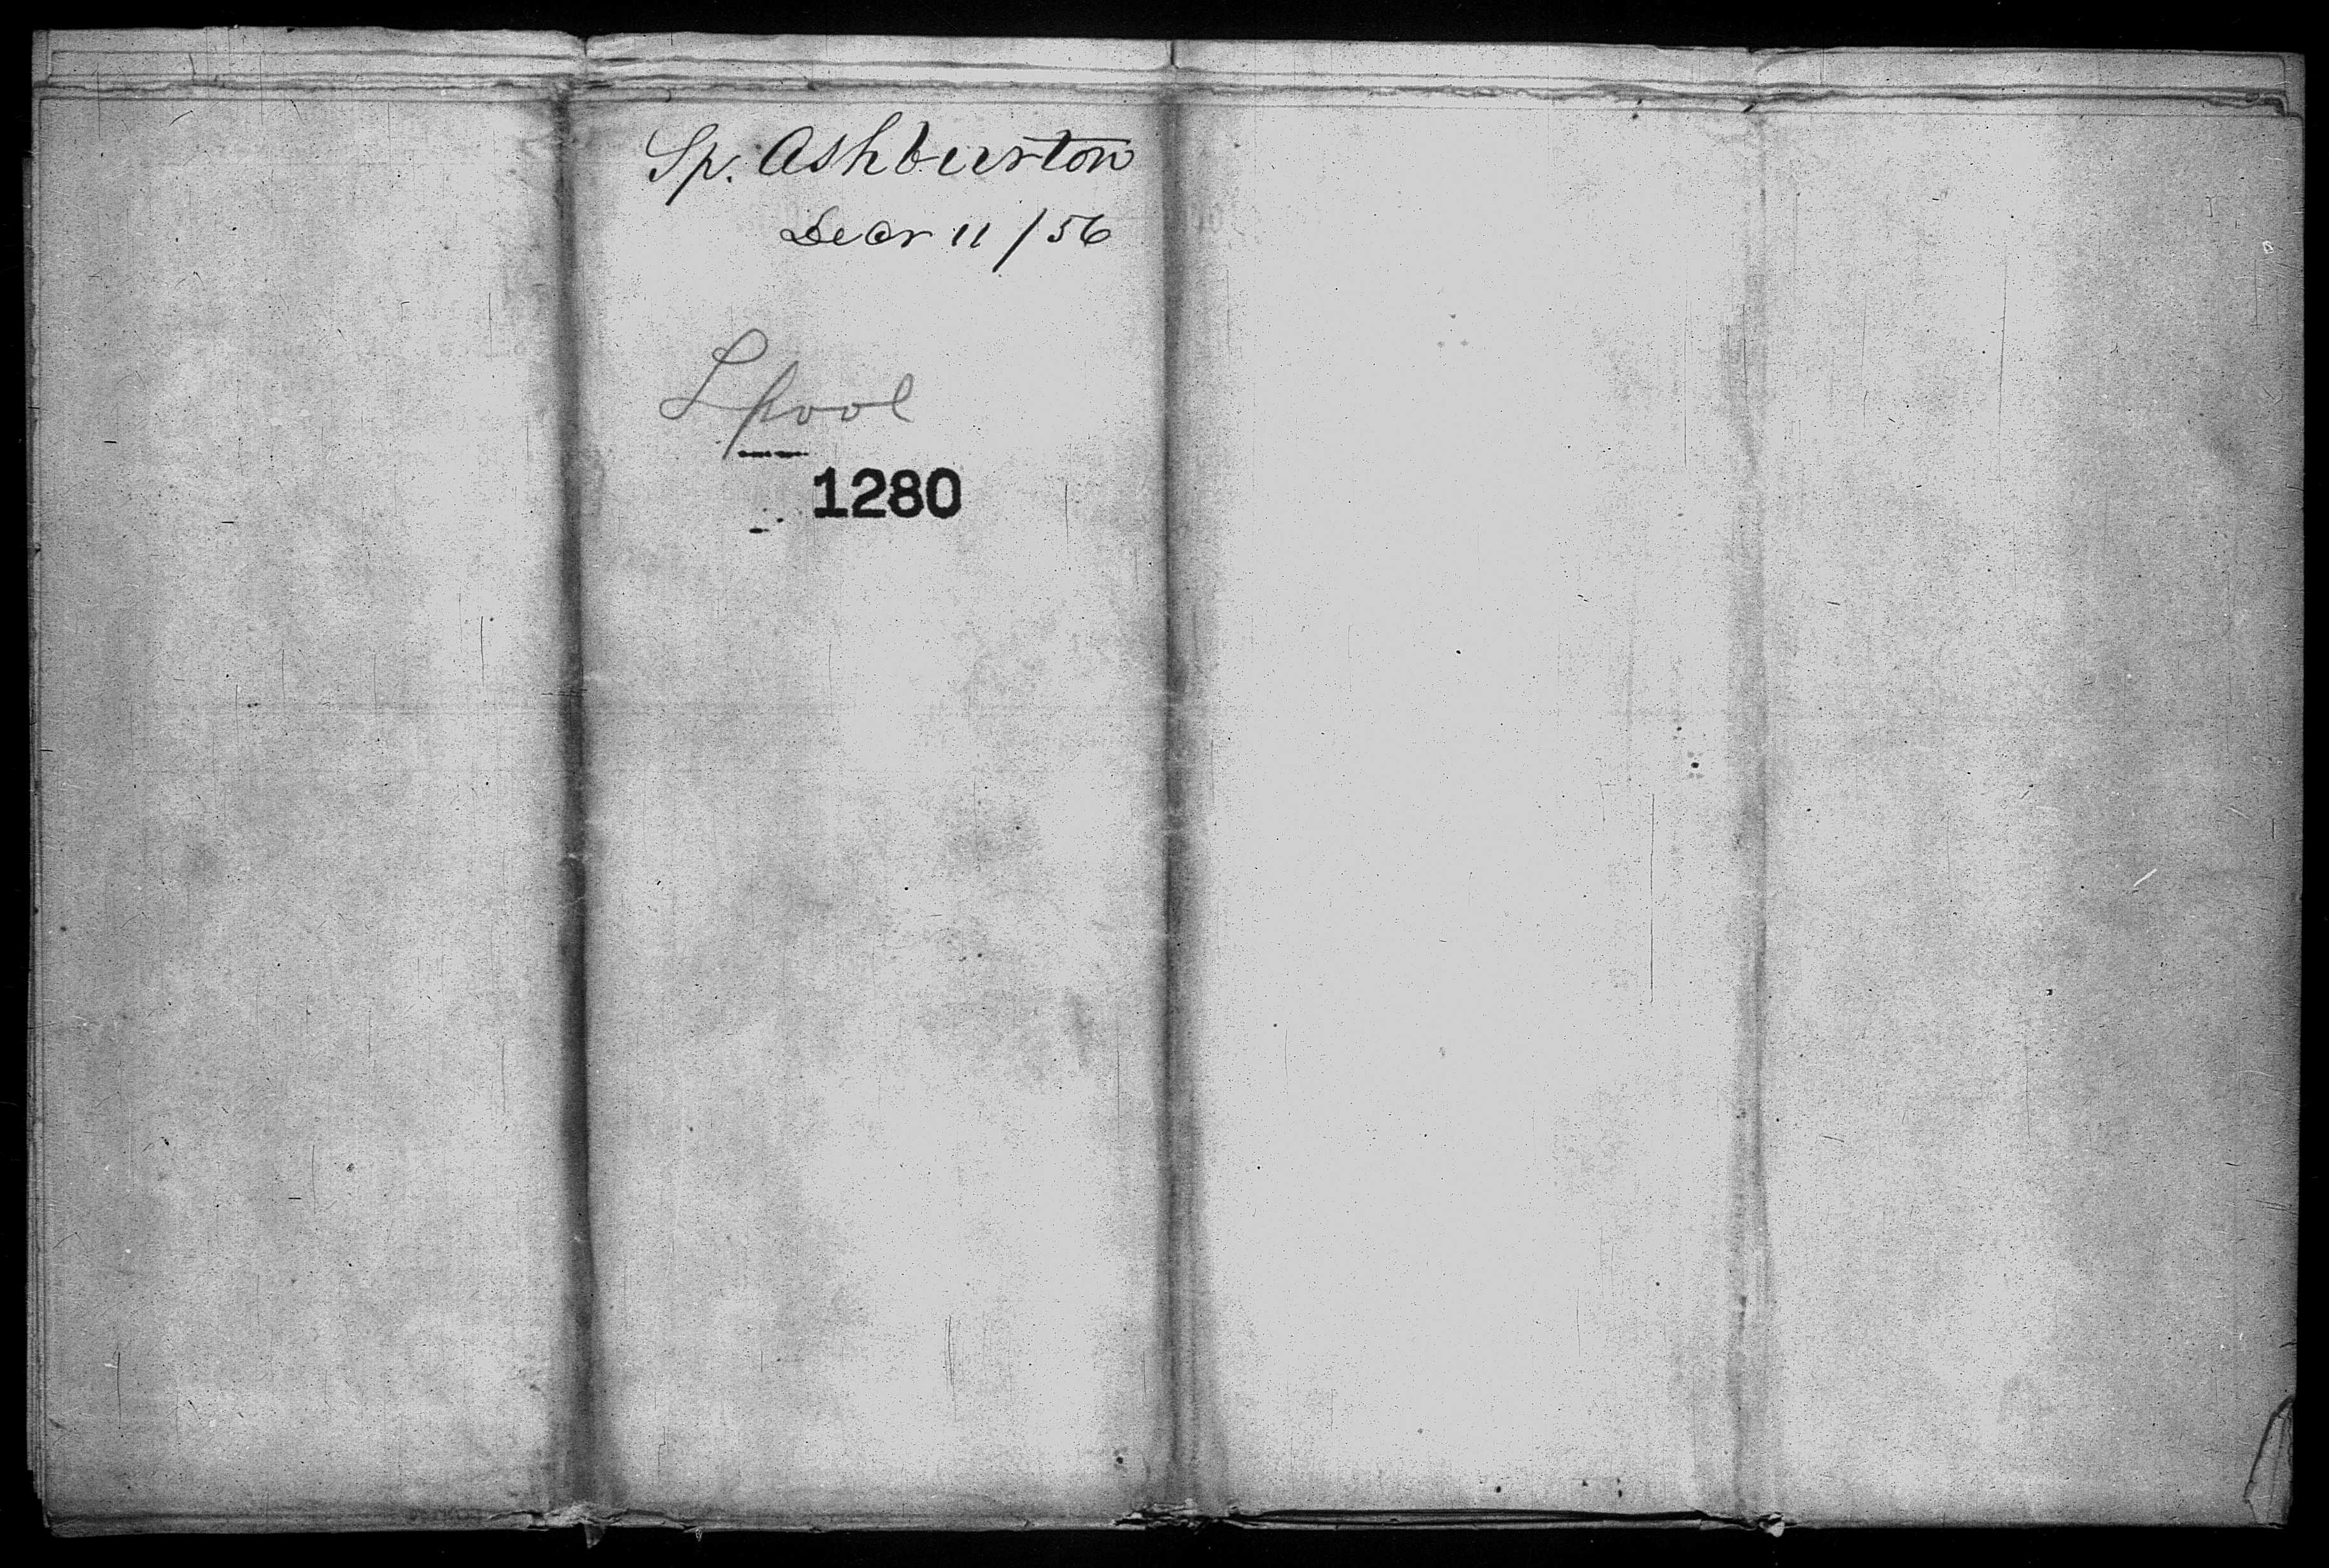 Sp. Ashburton
Decr 11/56
Lpool
1280